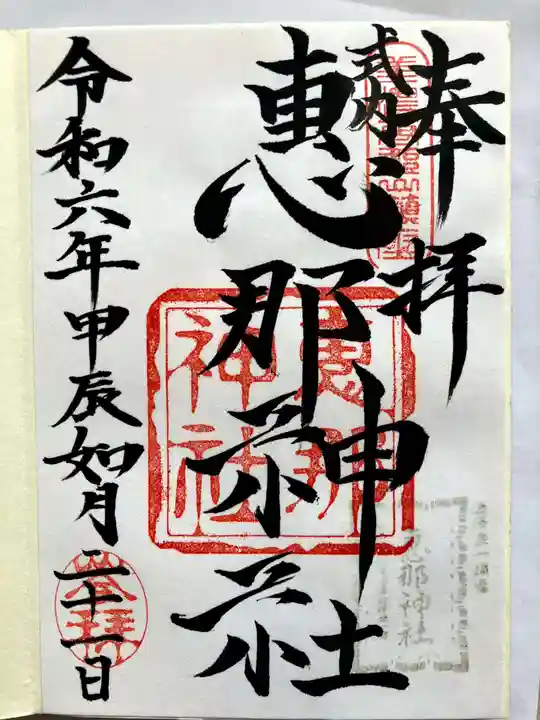 奉拝
式内
惠那神社
惠那神社
令和六年甲辰如月二十一日
奉拝
恵那神社